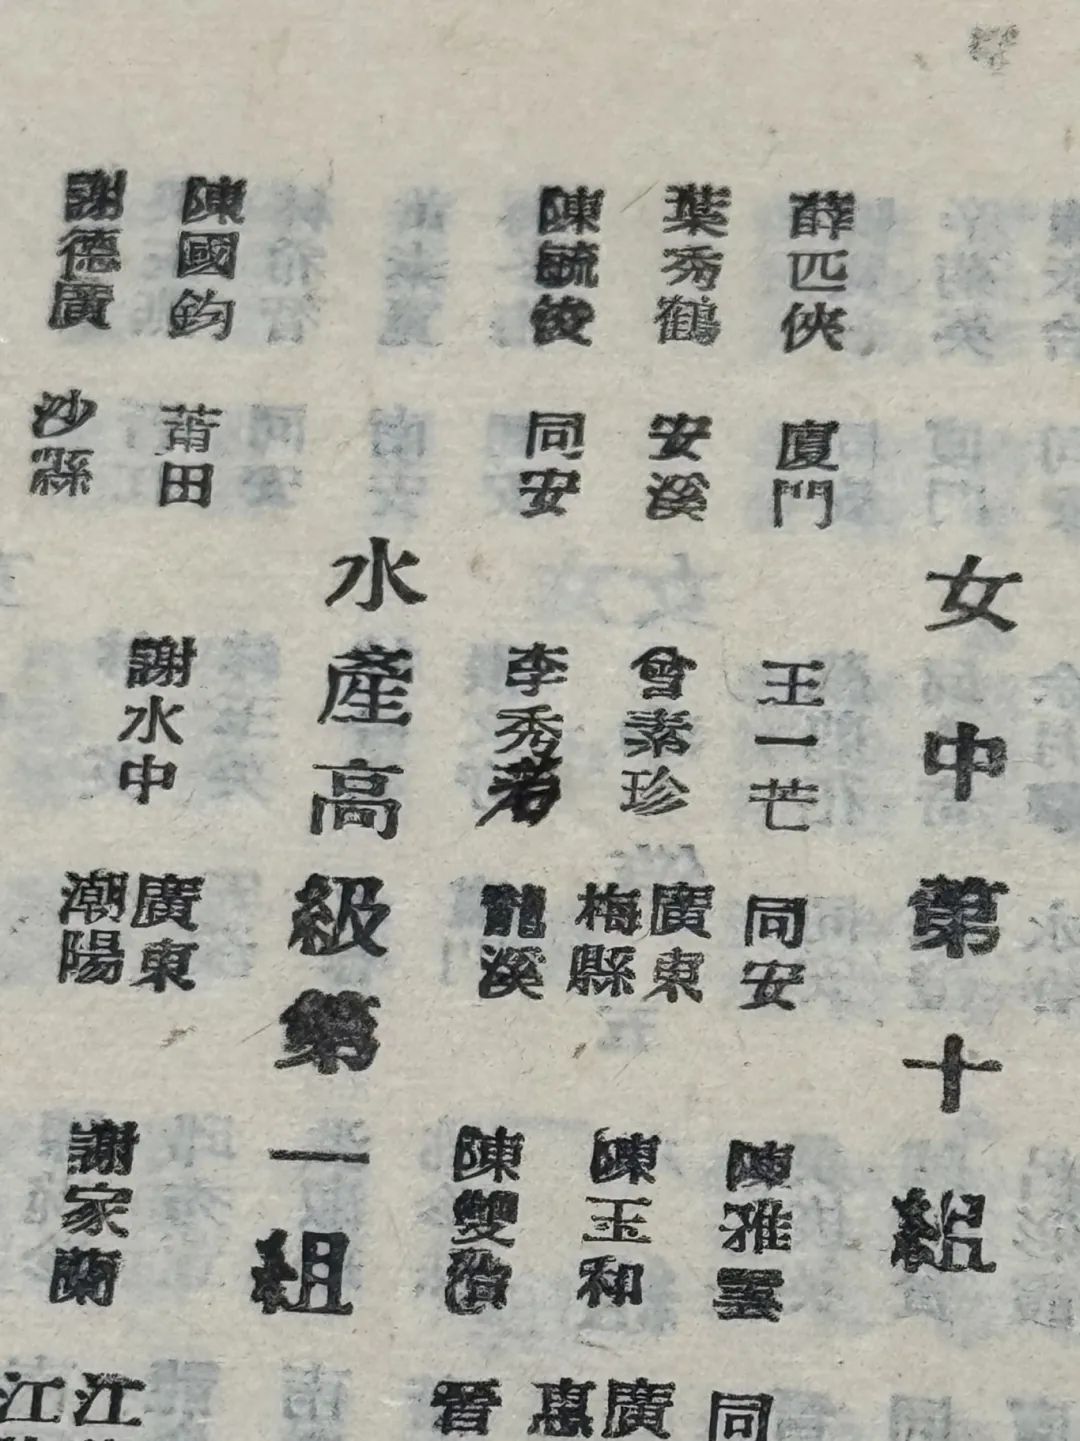 女中第十組
薛匹俠 廈門 王一芒 同安 陳雅雲 同
葉秀鶴 安溪 曾素珍 廣東梅縣 陳玉和 廣惠
陳毓 同安 李秀若 龍溪 陳雙 晉
水產高級第一組
陳國鈞 莆田 謝水中 廣東潮陽 謝家蘭 江江
謝德廣 沙縣